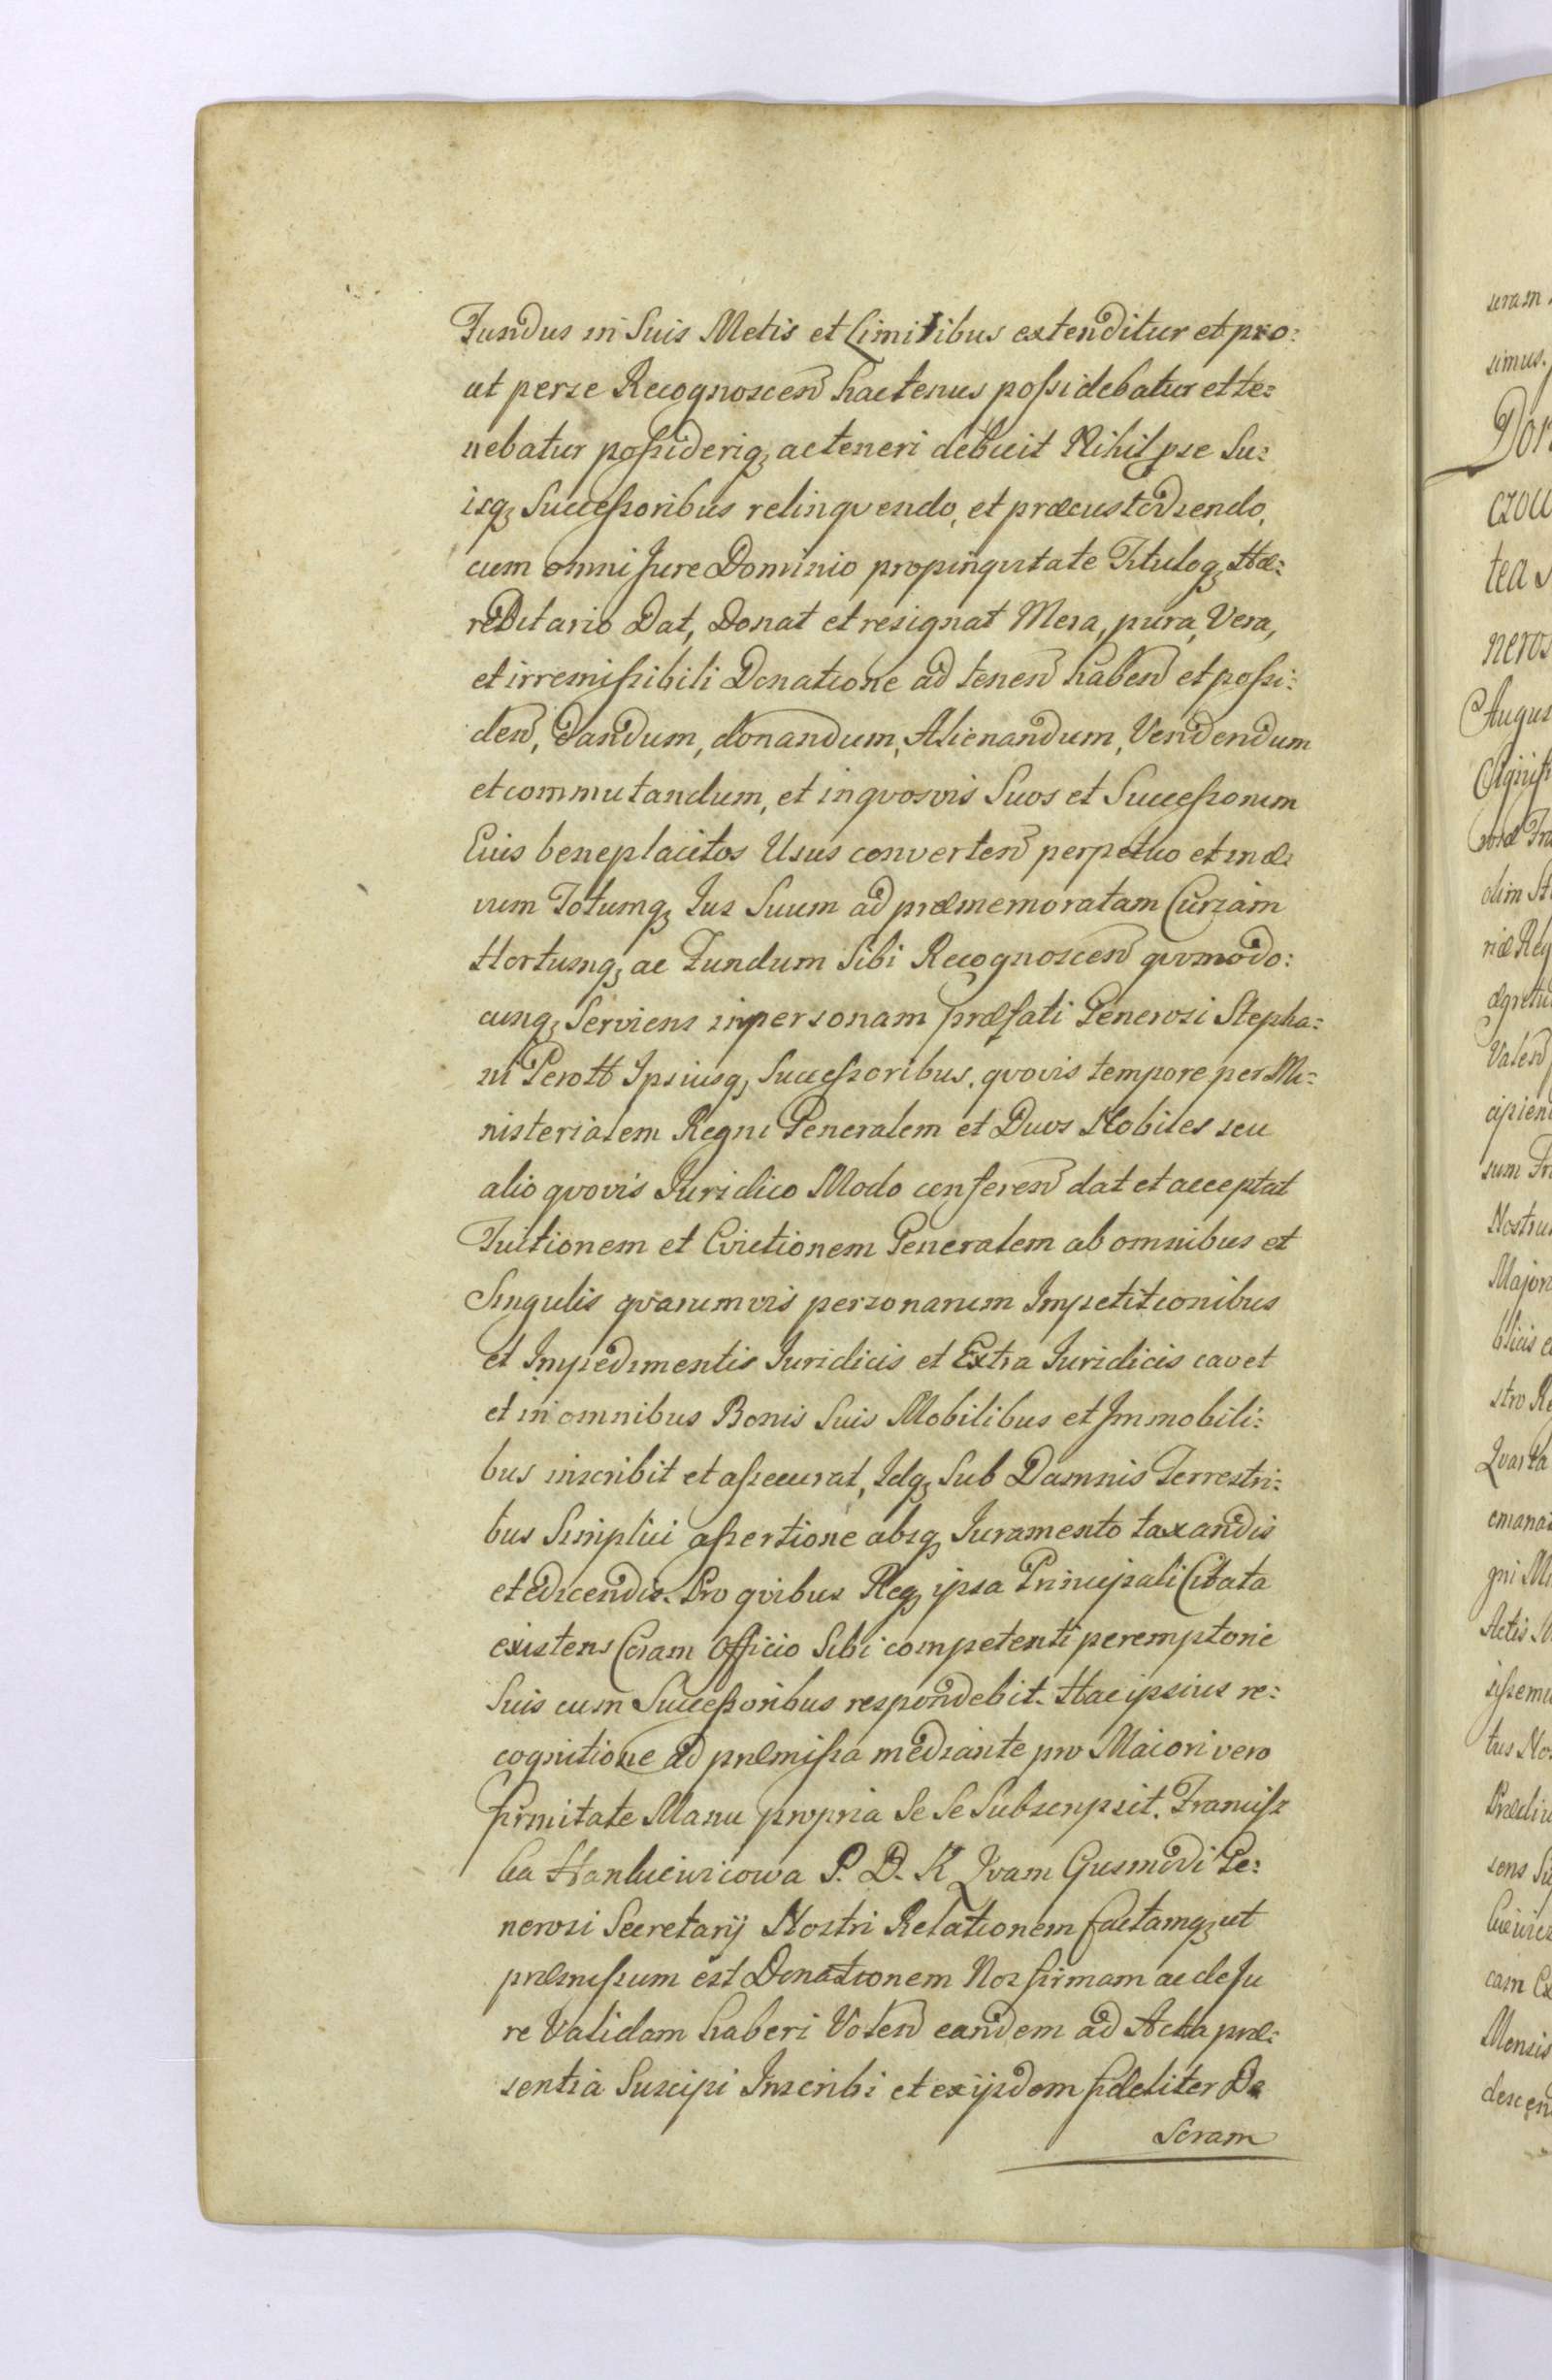 Fundus in Suis Metis et Limitibus extenditur et pro:
ut perse Recognoscen hactenus possidebatur et te:
nebatur possideriq; ac teneri debuit Nihil pse Su:
isq; Successoribus relinqvendo, et præcustodiendo,
cum omni Jure Dominio propinqvitate Tituloq; Hæ:
reditario Dat, Donat et resignat Mera, pura, Vera,
et irremissibili Donatione ad tenen haben et possi:
den, dandum, donandum, Alienandum, Vendendum
et commutandum, et in qvosvis Suos et Successorum
Eius beneplacitos Usus converten perpetuo et in æ:
vum Totumq; Jus Suum ad præmemoratam Curiam
Hortumq; ac Fundum Sibi Recognoscen qvomodo:
cunq; Serviens in personam præfati Generosi Stepha:
ni Perott Ipsiusq; Successoribus, qvovis tempore per Mi:
nisterialem Regni Generalem et Duos Nobiles seu
alio qvovis Juridico Modo conferen dat et acceptat
Tuitionem et Evictionem Generalem ab omnibus et
Singulis qvarumvis personarum Impetitionibus
et Impedimentis Juridicis et Extra Juridicis cavet
et in omnibus Bonis Suis Mobilibus et Immobili:
bus inscribit et assecurat, Idq; Sub Damnis Terrestri:
bus Simplici assertione absq; Juramento taxandis
et edicendis. Pro qvibus Req; ipsa Principali Citata
existens Coram Officio Sibi competenti peremptorie
Suis cum Successoribus respondebit. Hac ipsius re:
cognitione ad præmissa mediante pro Maiori vero
firmitate Manu propria Se Se Subscripsit. Francisz
ka Hankiewiczowa P. D. K Qvam Eiusmodi Ge:
nerosi Secretarij Nostri Relationem factamq; ut
præmissum est Donationem Nos firmam ac de Ju
re Validam haberi Volen eandem ad Acta præ:
sentia Suscipi Inscribi et ex ijsdem fideliter De
Scram